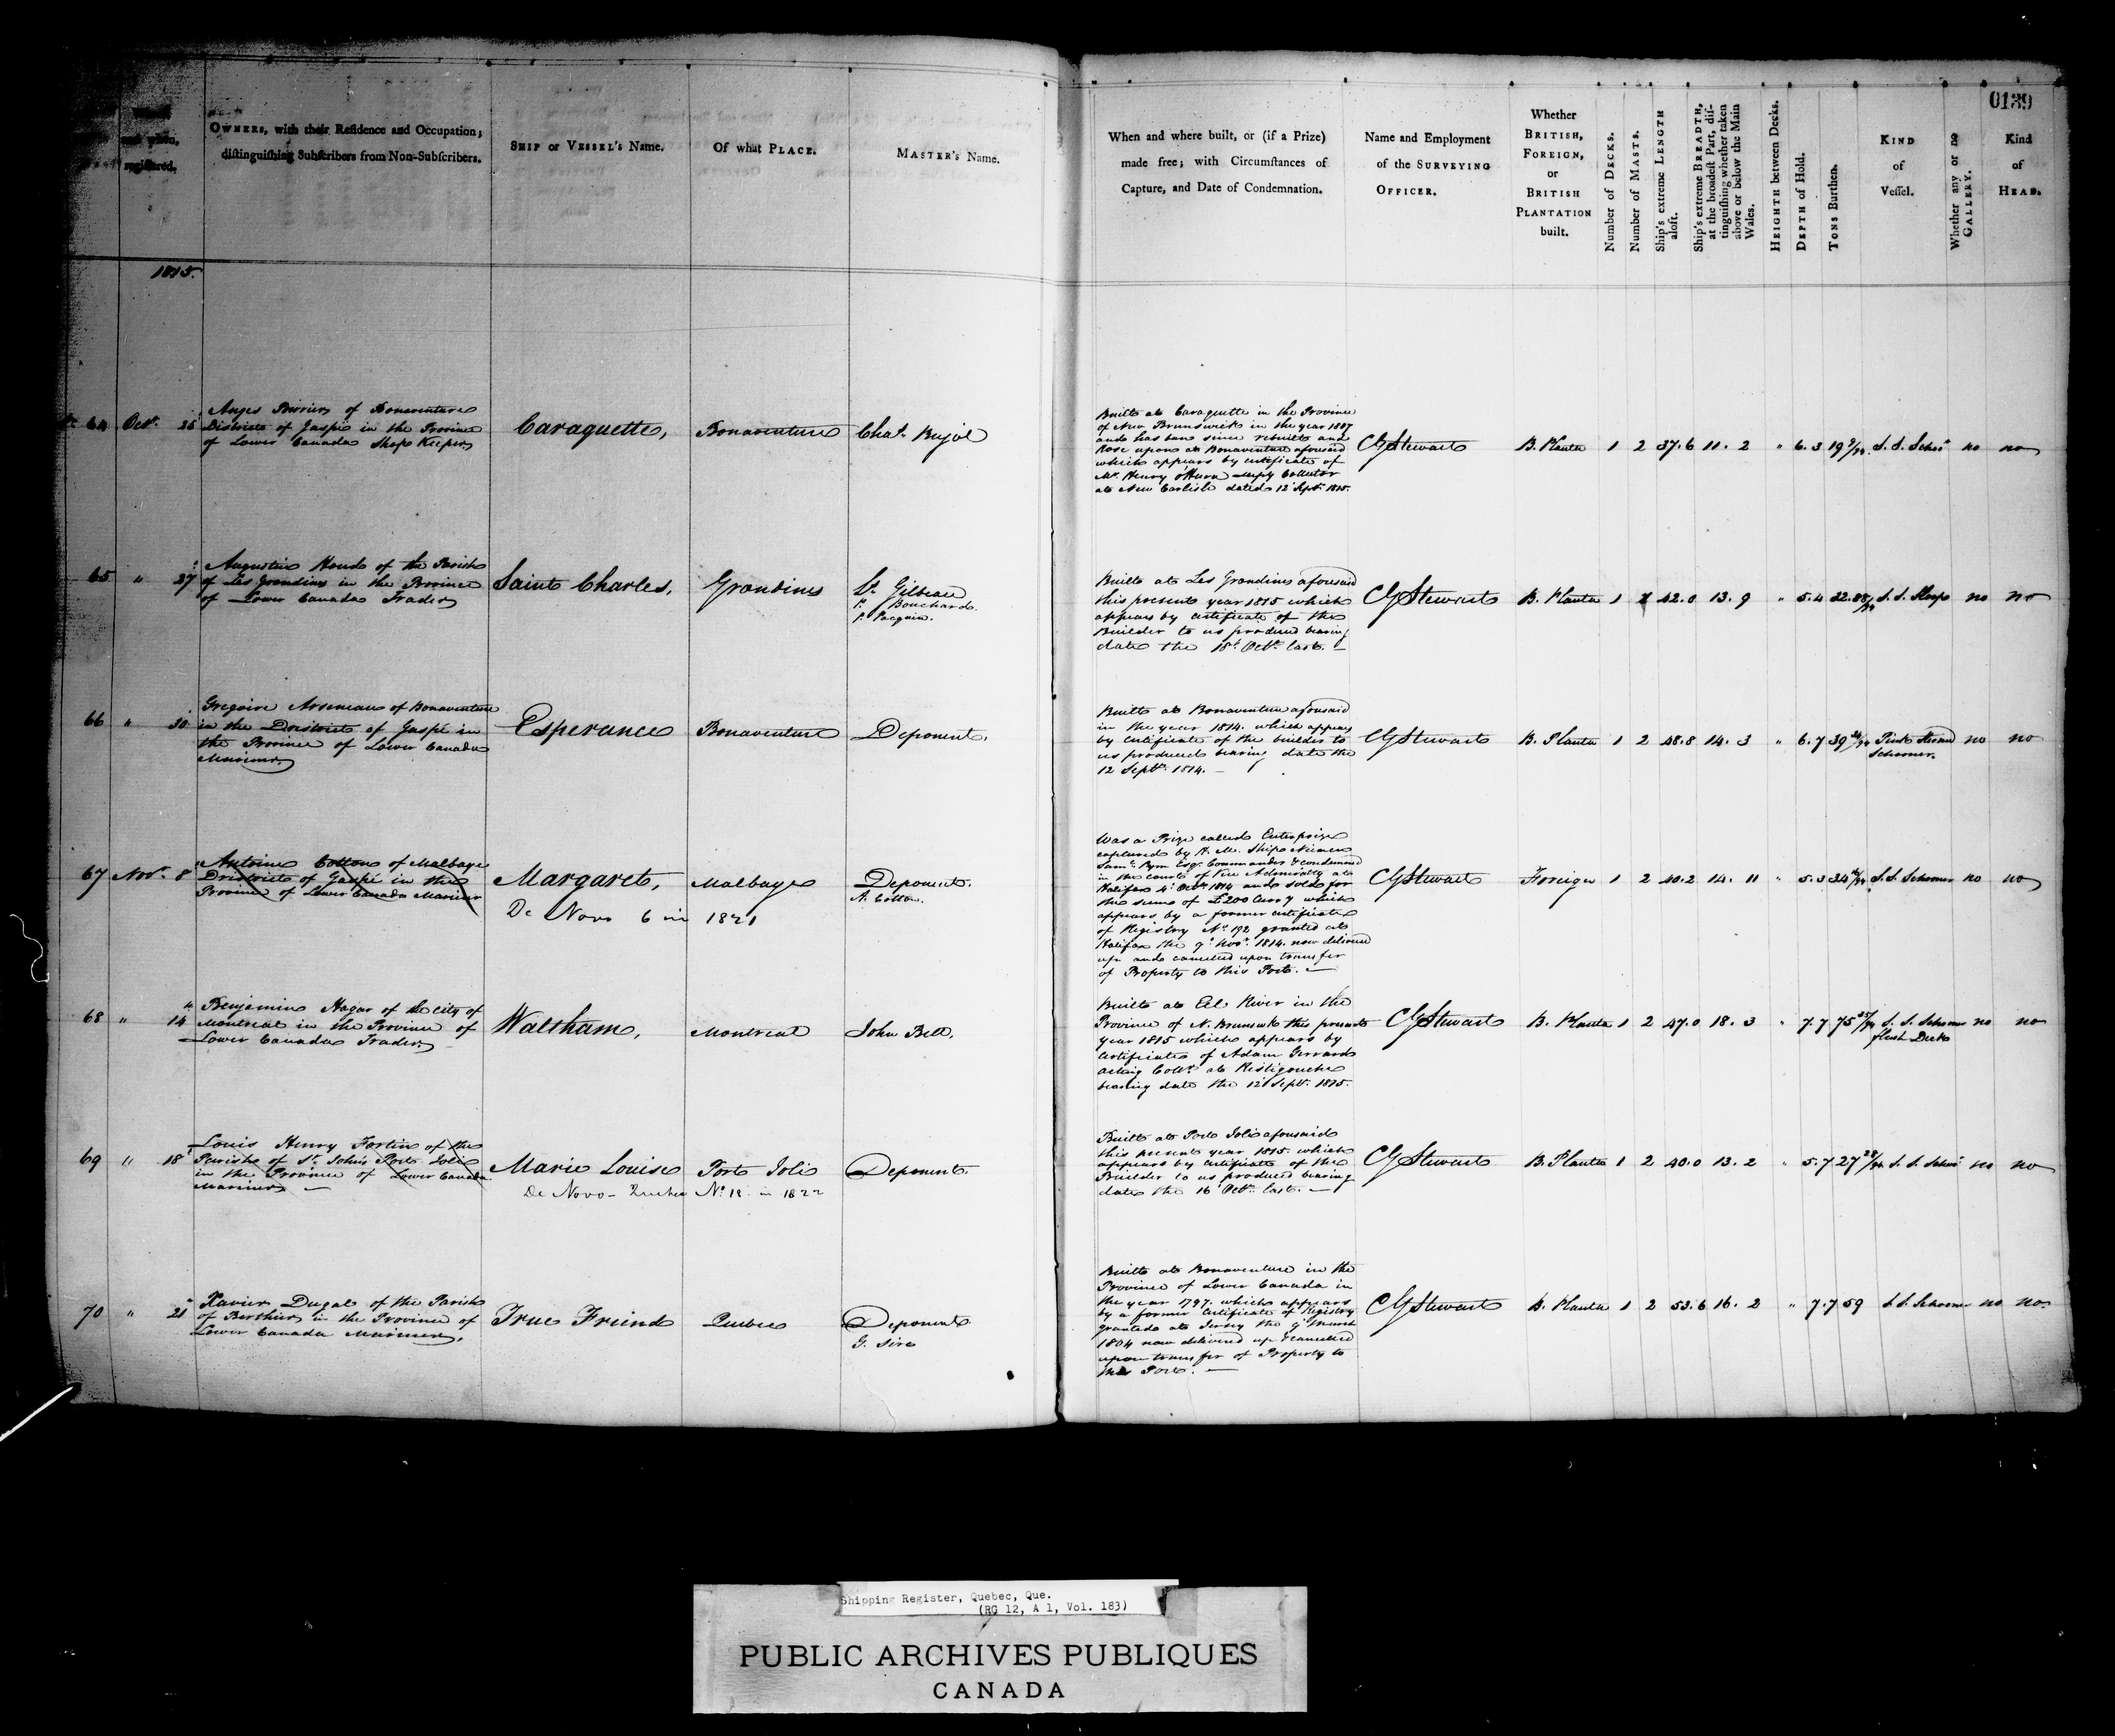 0139
and when, registered.
OWNERS, with their Residence and Occupation; distinguishing Subscribers from Non-Subscribers.
SHIP or VESSEL's Name.
Of what PLACE.
MASTER's Name.
When and where built, or (if a Prize) made free; with Circumstances of Capture, and Date of Condemnation.
Name and Employment of the SURVEYING OFFICER.
Whether BRITISH, FOREIGN, or BRITISH PLANTATION built.
Number of DECKS.
Number of MASTS.
Ship's extreme LENGTH aloft.
Ship's extreme BREADTH, at the broadest Part, distinguishing whether taken above or below the Main Wales.
HEIGHTH between Decks.
DEPTH of Hold.
TONS Burthen.
KIND of Vessel.
Whether any or no GALLERY.
Kind of HEAD.
1815.
64 Octr. 25
of Bonaventure
District of Gaspé in the Province
of Lower Canada Shop Keeper
Caraquette,
Bonaventure
Chas. Bujol
Built at Caraquette in the Province
of New Brunswick in the year 1807
and has been since rebuilt and
Rose upon at Bonaventure aforesaid
which appears by certificate of
Mr. Henry O'Hara Depy Collector
at New Carlisle dated 12 Septr. 1815.
CGStewart
B. Planta 1 2 37.6 11. 2 " 6. 3 19 S. S. Schor no no
65 " 27
Augustin Houde of the Parish
of Les Grondines in the Province
of Lower Canada Trader
Saint Charles,
Grondines
Gilbeau
P. Bouchard
P. Pacquin.
Built at Les Grondines aforesaid
this present year 1815 which
appears by certificate of the
Builder to us produced bearing
date the 18t. Octr. last. —
CGStewart
B. Planta 1 42.0 13. 9 " 5.4 32.88/94 S. S. Sloop no no
66 " 30
Gregoire Arseneau of Bonaventure
in the District of Gaspé in
the Province of Lower Canada
Mariner
Esperance
Bonaventure
Deponent.
Built at Bonaventure aforesaid
in the year 1814. which appears
by certificate of the builder to
us produced bearing date the
12 Septr. 1814. —
CGStewart
B. Planta 1 2 48.8 14. 3 " 6.7 39 Pink Sternd
Schooner.
no no
67 Novr. 8
Antoine Cotton of Malbaye
District of Gaspé in the
Province of Lower Canada Mariner
Margaret,
De Novo 6 in 1821
Malbaye
Deponent.
A. Cotton.
Was a Prize called Enterprize
captured by H. M. Ship Niemen
Saml. Pym Esqr. Commander & condemned
in the court of Vice Admiralty at
Halifax 4 Octr. 1814 and sold for
the sum of £200 Curr'y which
appears by a former certificate
of Registry No. 192 granted at
Halifax the 9 Novr. 1814. now delivered
up and cancelled upon transfer
of Property to this Port. —
CGStewart
Foreign 1 2 40.2 14. 11 " 5.3 34 S. S. Schooner no no
68 " 14
Benjamin Hagar of the city of
Montreal in the Province of
Lower Canada Trader
Waltham,
Montreal
John Bell,
Built at Eel River in the
Province of N. Brunswk this present
year 1815 which appears by
Certificate of Adam Gerrard
acting Collr. at Ristigouche
bearing date the 12 Septr. 1815.
CGStewart
B. Planta 1 2 47.0 18. 3 " 7.7 75 S. S. Schooner
flush Deck
no no
69 " 18
Louis Henry Fortin of the
Parish of St. John's Port Joli
in the Province of Lower Canada
Mariner —
Marie Louise
De Novo - Quebec No. 18 in 1822
Port Joli
Deponent
Built at Port Joli aforesaid
this present year 1815. which
appears by certificate of the
Builder to us produced bearing
date the 16 Octr. last. —
CGStewart
B. Planta 1 2 40.0 13. 2 " 5.7 27 28/94 S. S. Schor no no
70 " 21
Xavier Dugal of the Parish
of Berthier in the Province of
Lower Canada Mariner,
True Friend
Quebec
Deponent
G. Sire
Built at Bonaventure in the
Province of Lower Canada in
the year 1797. which appears
by a former Certificate of Registry
granted at Jersey the 9 March
1804 now delivered up & cancelled
upon transfer of Property to
this Port. —
CGStewart
B. Planta 1 2 53.6 16. 2 " 7.7 59 S. S. Schooner no no
Shipping Register, Quebec, Que.
(RG 12, A 1, Vol. 183)
PUBLIC ARCHIVES PUBLIQUES
CANADA